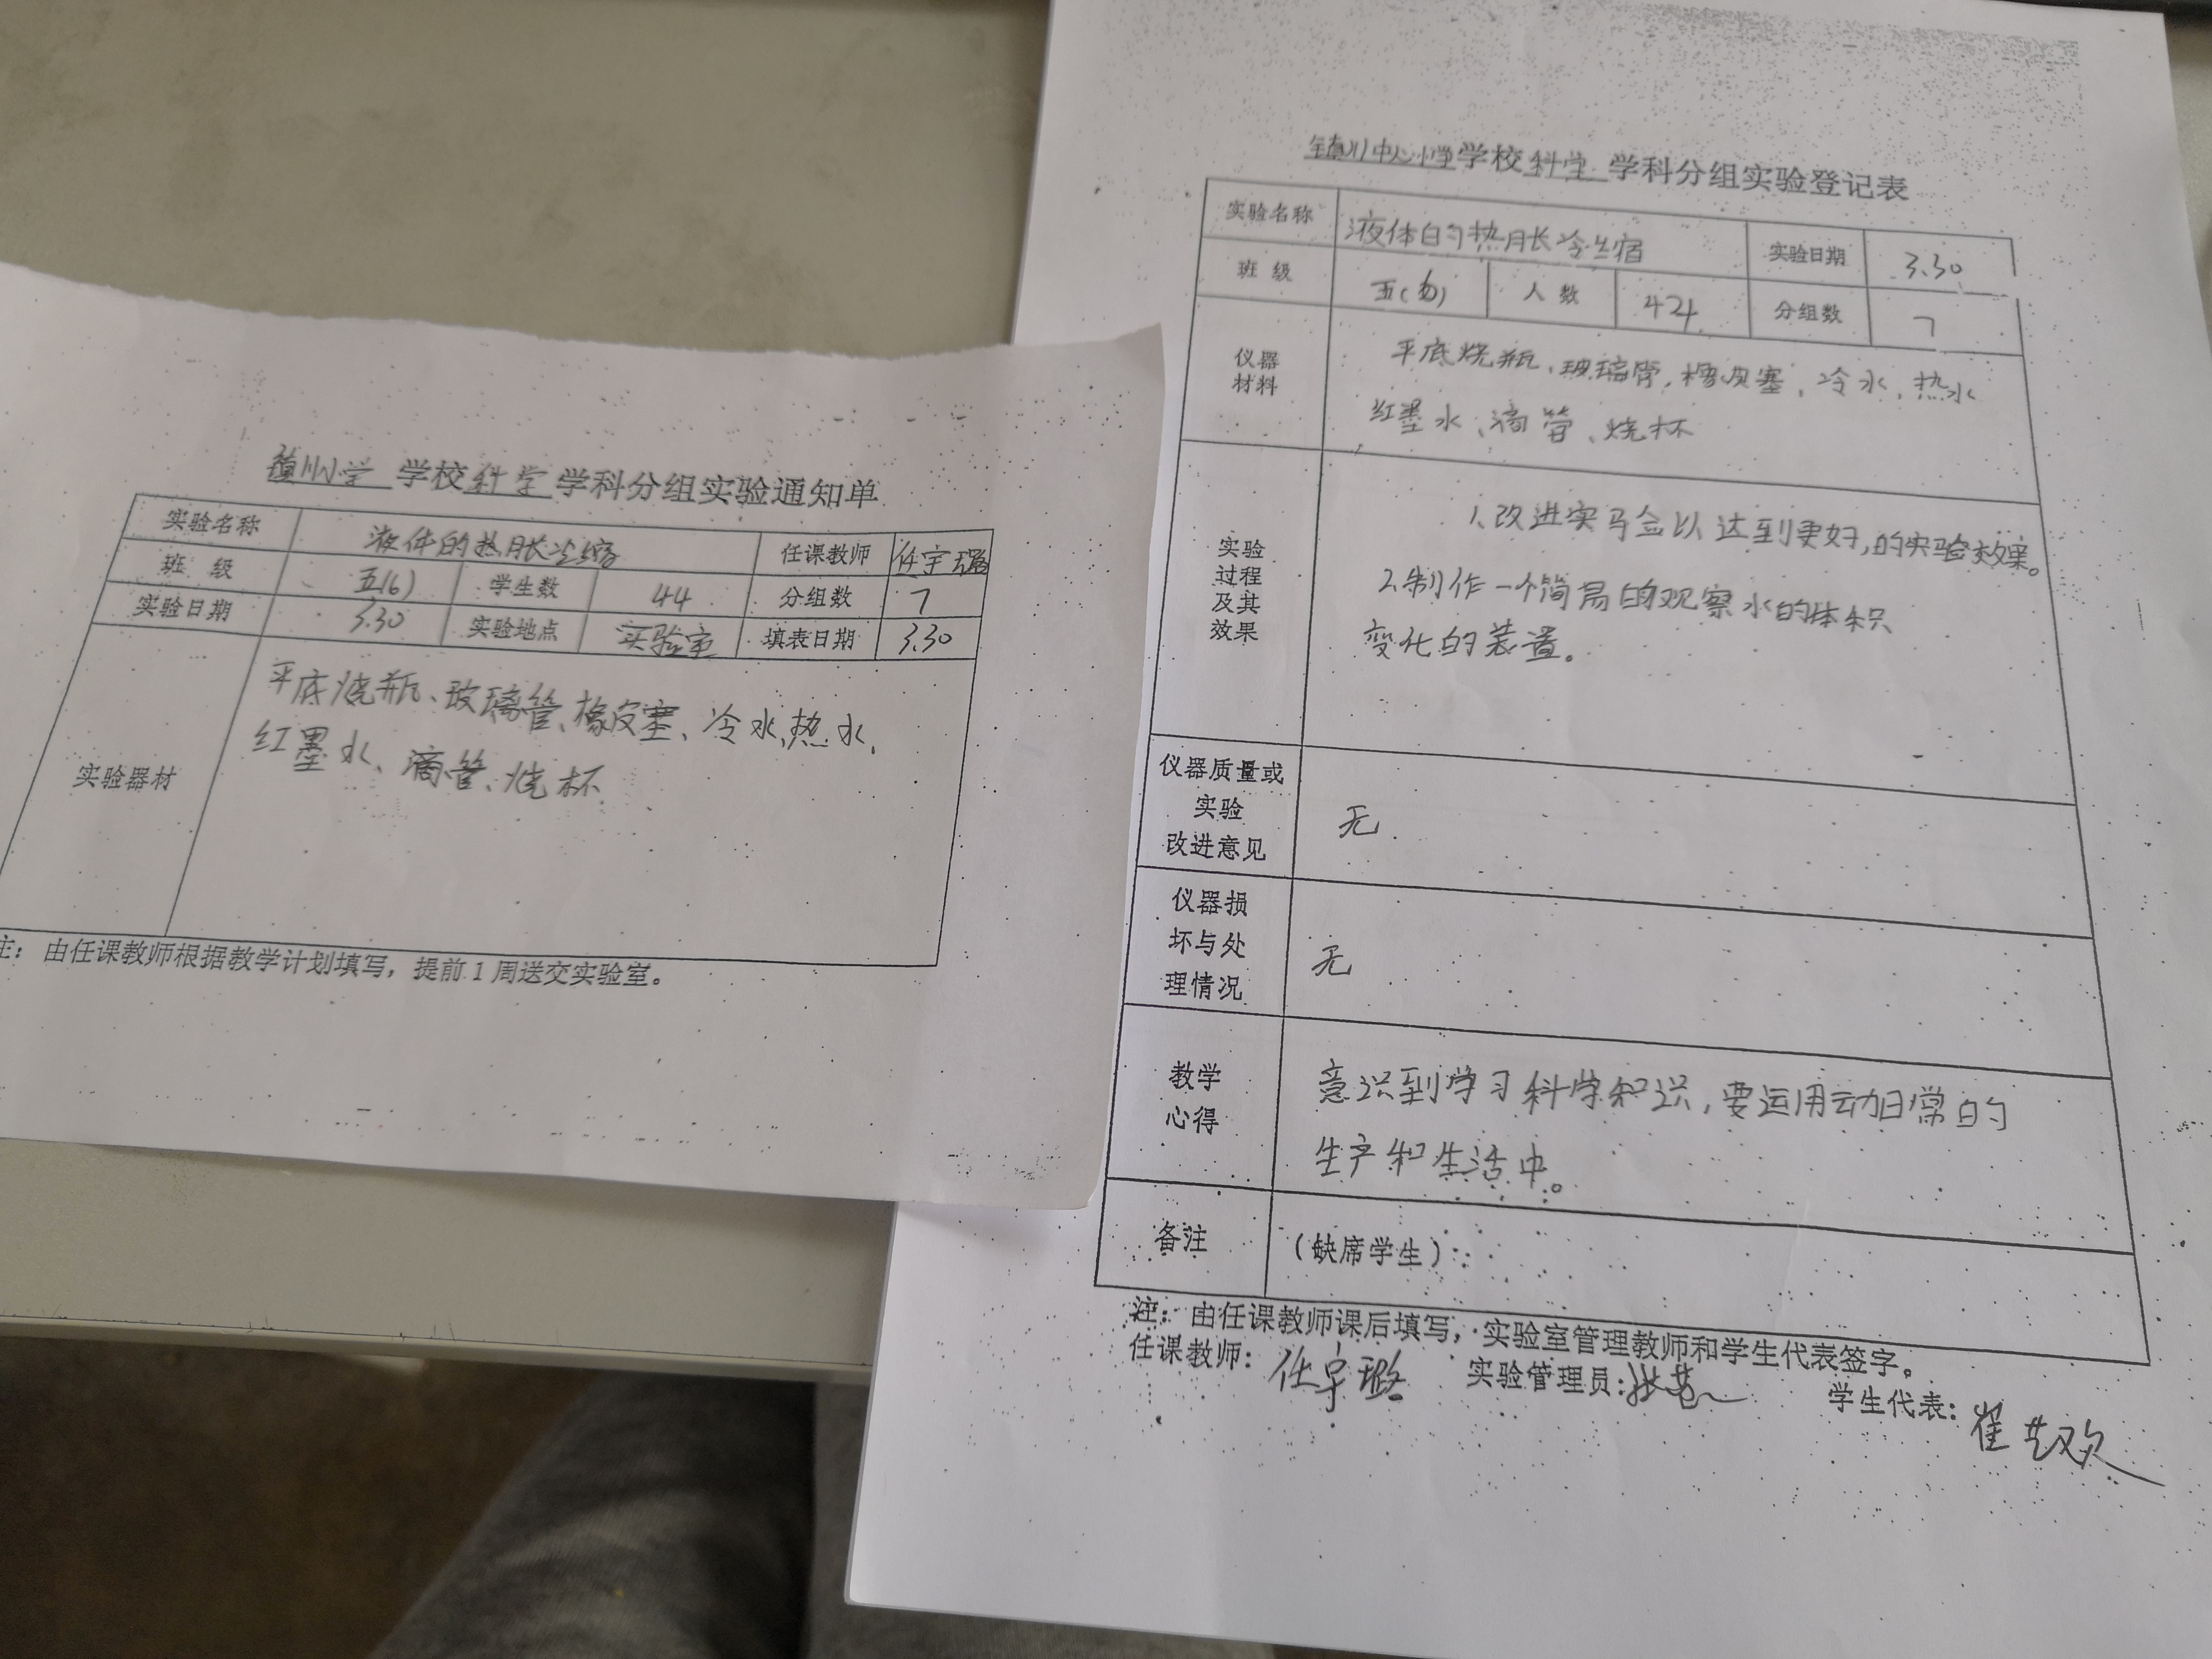 镇川小学 学校 科学 学科分组实验通知单
实验名称 液体的热胀冷缩 任课教师 任宇璐
班 级 五(6) 学生数 44 分组数 7
实验日期 3.30 实验地点 实验室 填表日期 3.30
实验器材
平底烧瓶、玻璃管、橡皮塞、冷水、热水、
红墨水、滴管、烧杯
注：由任课教师根据教学计划填写，提前1周送交实验室。
镇川中心小学 学校 科学 学科分组实验登记表
实验名称 液体的热胀冷缩 实验日期 3.30
班 级 人 数 分组数 7
仪器
材料
平底烧瓶、玻璃管，橡皮塞，冷水，热水
红墨水、滴管、烧杯
实验
过程
及其
效果
1、改进实验以达到更好的实验效果。
2.制作一个简易的观察水的体积
变化的装置。
仪器质量或
实验
改进意见
无
仪器损
坏与处
理情况
无
教学
心得
意识到学习科学知识，要运用动日常的
生产和生活中。
备注 (缺席学生)：
注：由任课教师课后填写，实验室管理教师和学生代表签字。
任课教师：任宇璐 实验管理员： 学生代表：崔